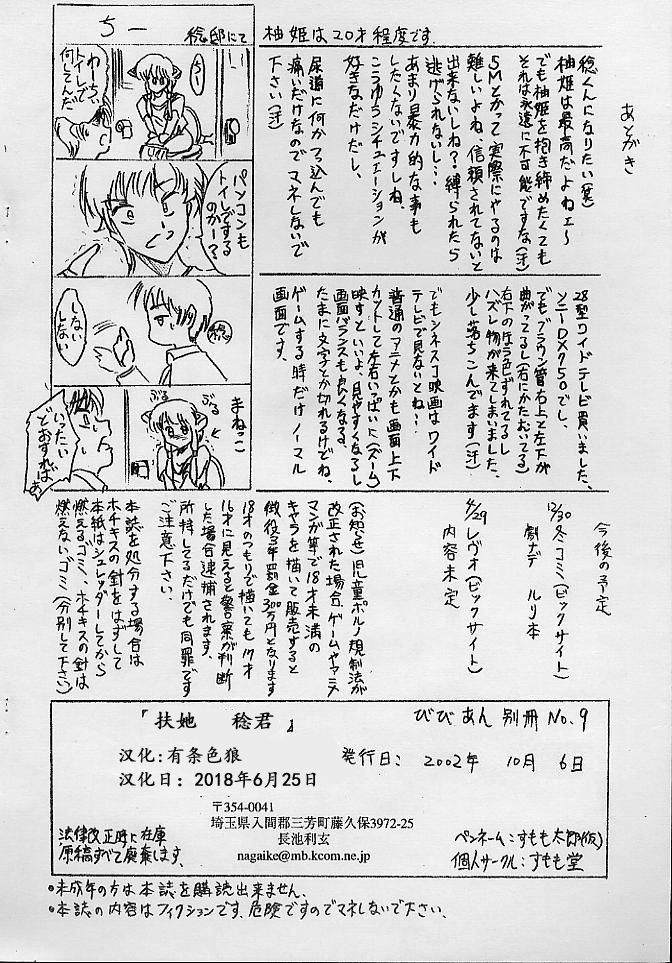 あとがき
柚姫は20才程度です.
稔くんになりたい(笑)
柚姫は最高だよねェ〜
でも柚姫を抱き締めたくても
それは永遠に不可能ですな(汗)
SMとかって実際にやるのは
難しいよね、信頼されてないと
出来ないしね?縛られたら
逃げられないし…
あまり暴力的な事も
したくないですしね、
こうゆうシチュエーションが
好きなだけだし、
尿道に何かつっ込んでも
痛いだけなのでマネしないで
下さい(汗)
稔邸にて
ちー
ちぃ
わーちぃ
トイレで
何してんだ
パソコンも
トイレする
のかー?
稔
しない
しない
まねっこ
ぶる
ぶる
いったい
どおすれば
ぁ
28型ワイドテレビ買いました、
ソニーDX750でし、
でもブラウン管右上と左下が
曲がってるし(右にかたむいてる)
右下の方が色ずれてるし
ハズレ物が来てしまいました、
少し落ちこんでます(汗)
でもシネスコ映画はワイド
テレビで見ないとね!!
普通のアニメとかも画面上下
カットして左右いっぱいに(ズーム)
映すといいよ、見やすくなるし
画面バランスも良くなる、
たまに文字とか切れるけどね、
ゲームする時だけノーマル
画面です、
今後の予定
12/30 冬コミ(ビックサイト)
劇ナデ ルリ本
4/29 レヴォ(ビックサイト)
内容未定
(お知らせ)児童ポルノ規制法が
改正された場合、ゲームやアニメ
マンガ等で18才未満の
キャラを描いて販売すると
懲役3年罰金300万円となります
18才のつもりで描いても17才
16才に見えると警察が判断
した場合逮捕されます、
所持してるだけでも同罪です
ご注意下さい、
本誌を処分する場合は
ホチキスの針をはずして
本紙はシュレッダーしてから
燃えるゴミ、ホチキスの針は
燃えないゴミ(分別して下さい)
『扶她 稔君』
びびあん 別冊 No.9
汉化:有条色狼
発行日: 2002年 10月 6日
汉化日: 2018年6月25日
〒354-0041
埼玉県入間郡三芳町藤久保3972-25
長池利玄
nagaike@mb.kcom.ne.jp
法律改正時に在庫
原稿すべて廃棄します.
ペンネーム:すもも太郎(仮)
個人サークル:すもも堂
•未成年の方は本誌を購読出来ません.
•本誌の内容はフィクションです.危険ですのでマネしないで下さい.